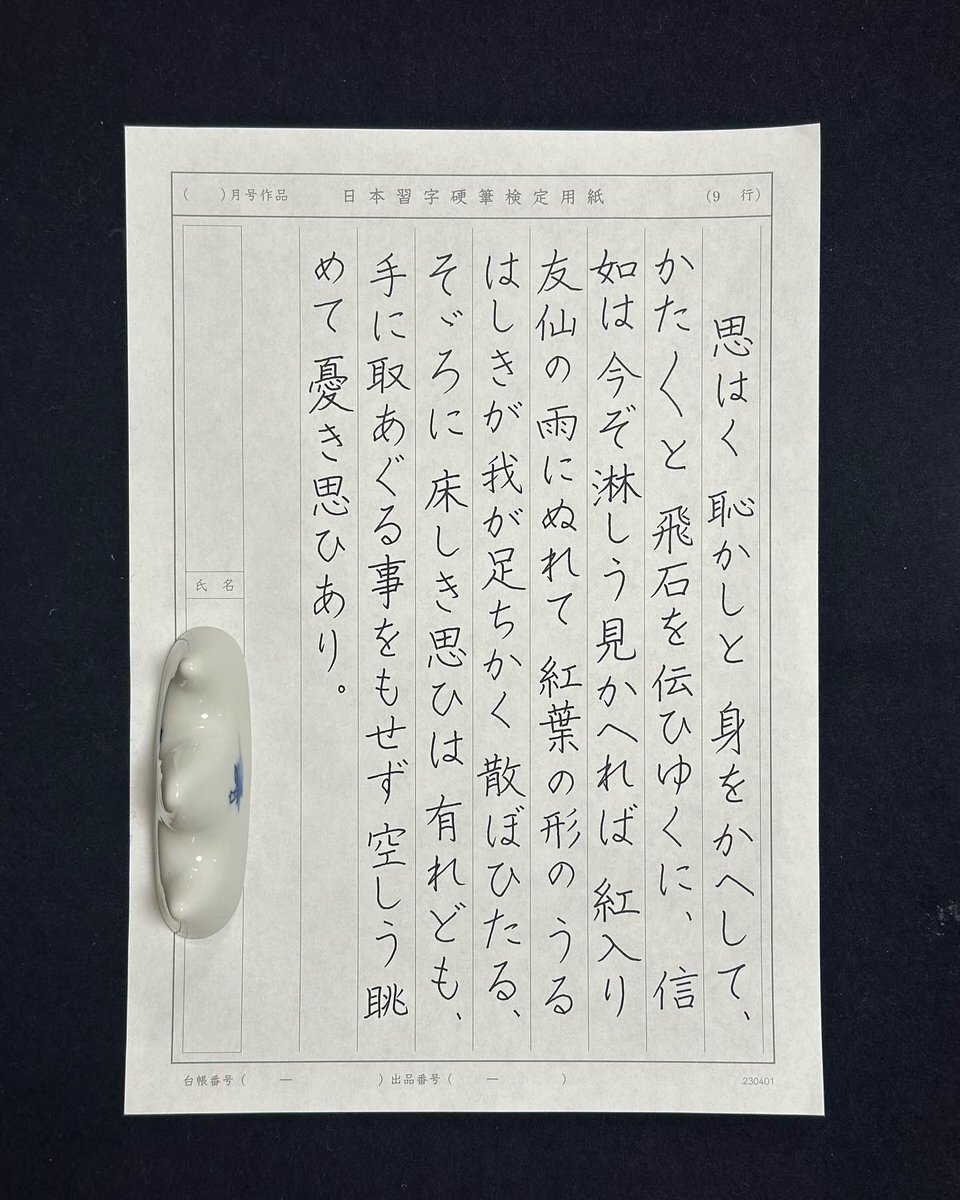 (　)月号作品　日本習字硬筆検定用紙　(9　行)
思はく恥かしと身をかへして、
かたくと飛石を伝ひゆくに、信
如は今ぞ淋しう見かへれば紅入り
友仙の雨にぬれて紅葉の形のうる
はしきが我が足ちかく散ぼひたる、
そゞろに床しき思ひは有れども、
手に取あぐる事をもせず空しう眺
めて憂き思ひあり。
氏名
台帳番号(　―　)出品番号(　―　)
230401